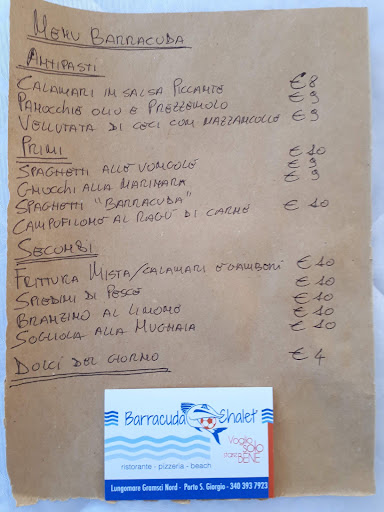 MENU BARRACUDA
ANTIPASTI
CALAMARI IN SALSA PICCANTE € 8
PANOCCHIE OLIO E PREZZEMOLO € 9
VELLUTATA DI CECI CON MAZZANCOLLE € 9
PRIMI
SPAGHETTI ALLE VONGOLE € 10
GNOCCHI ALLA MARINARA € 9
SPAGHETTI "BARRACUDA" € 9
CAMPOFILONE AL RAGÙ DI CARNE € 10
SECONDI
FRITTURA MISTA/CALAMARI E GAMBERI € 10
SPIEDINI DI PESCE € 10
BRANZINO AL LIMONE € 10
SOGLIOLA ALLA MUGNAIA € 10
DOLCI DEL GIORNO € 4
Barracuda Chalet
Voglio
SOLO
BENE
ristorante - pizzeria - beach
Lungomare Gramsci Nord - Porto S. Giorgio - 340 393 7923